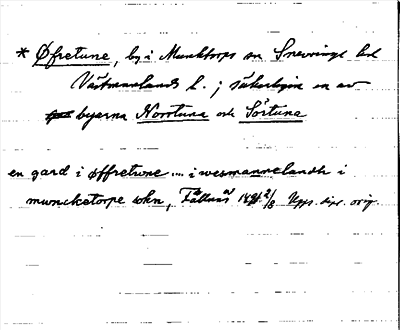 * Øfretune, by i Munktorps sn Snevringe hd
Västmanlands l. ; säkerligen en av
byerna Norrtuna och Sörtuna
en gard i øffretwne ... i wesmannelandh i
muncketorpe sokn, 2/8 Upps. dipl. orig.